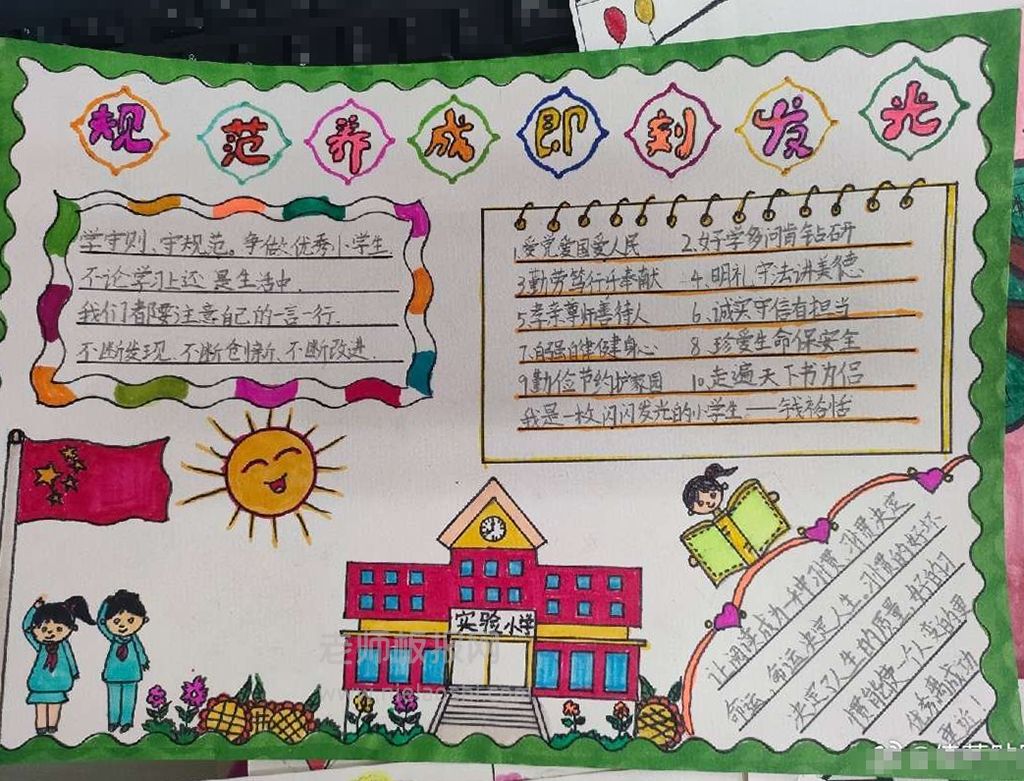 规范养成即刻发光
学守则、守规范。争做优秀小学生
不论学习上还是生活中、
我们都要注意自己的一言一行.
不断发现、不断创新、不断改进.
1.爱党爱国爱人民 2.好学多问肯钻研
3勤劳笃行乐奉献 4、明礼守法讲美德
5孝亲尊师善待人 6、诚实守信有担当
7、自强自律健身心 8、珍爱生命保安全
9勤俭节约护家园 10.走遍天下书为侣
我是一枚闪闪发光的小学生——钱裕恬
实验小学
让阅读成为一种习惯、习惯决定
命运、命运决定人生。习惯的好坏
决定了人生的质量、好的习
惯能使一个人变的更
优秀离成功
更近！
老师板报网